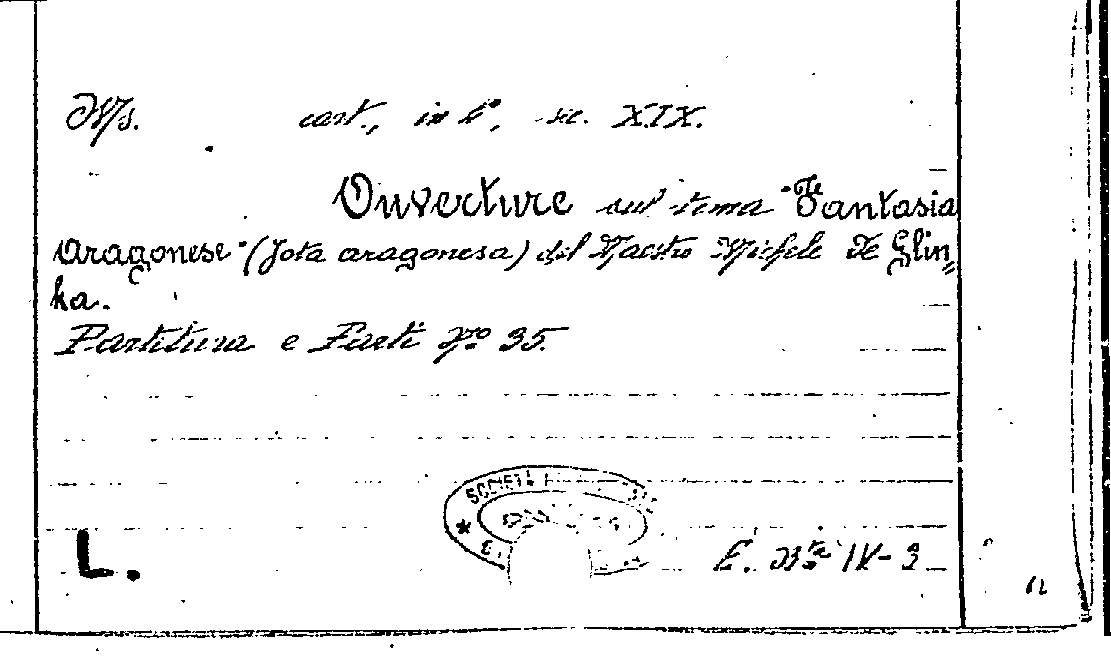 Ms. cart., in 4°, sec. XIX.
Ouverture sul tema "Fantasia
aragonese" (Jota aragonesa) del Maestro Michele De Glin=
ka.
Partitura e Parti Nº 35.
SOCIETÀ
L.
E. IV-3
12